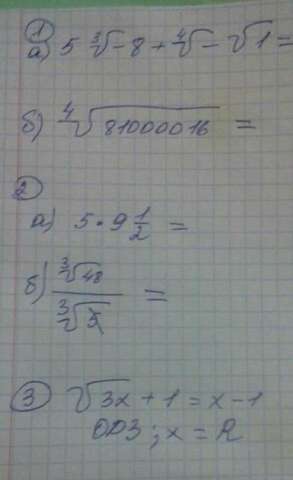 1
а) 5 ∛-8 + ∜- √1 =
б) ∜81000016 =
2
а) 5 · 9 1/2 =
б) ∛48 / ∛5 =
3 √3x + 1 = x - 1
ОДЗ ; x = R